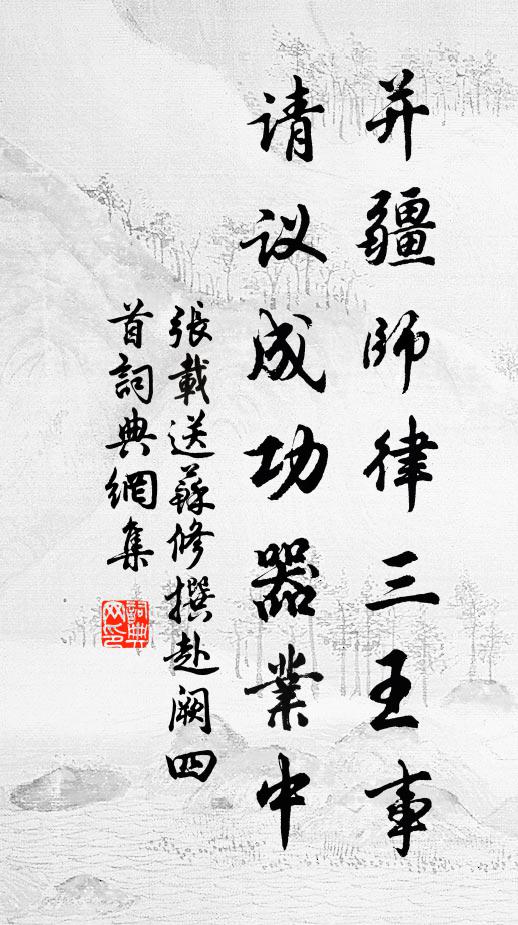 并疆師律三王事
请议成功器業中
張載送蘇修撰赴阙四
首詞典網集
詞典网印